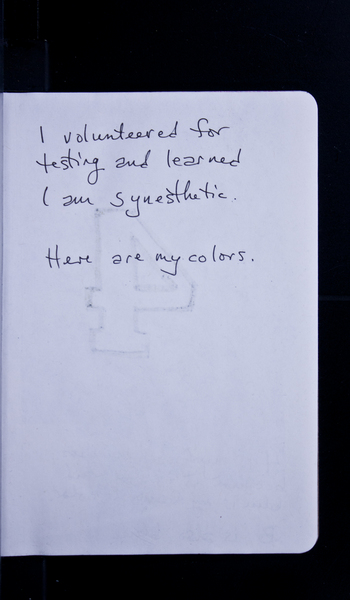 I volunteered for
testing and learned
I am synesthetic.
Here are my colors.
4